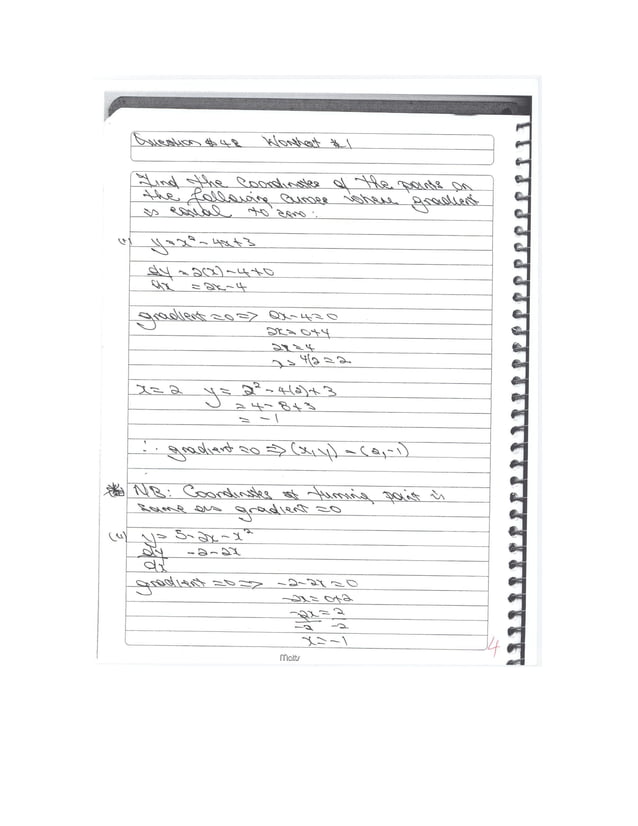 Question # 48 Worksheet # 1
Find the coordinates of the points on
the following curves where gradient
is equal to zero:
(i) y = x² - 4x + 3
dy/dx = 2(x) - 4 + 0
= 2x - 4
gradient = 0 => 2x - 4 = 0
2x = 0 + 4
2x = 4
x = 4/2 = 2
x = 2 y = 2² - 4(2) + 3
= 4 - 8 + 3
= -1
∴ gradient = 0 => (x, y) = (2, -1)
NB: Coordinates of turning point is
same as gradient = 0
(ii) y = 5 - 2x - x²
dy/dx -2 - 2x
gradient = 0 => -2 - 2x = 0
-2x = 0 + 2
-2x/-2 = 2/-2
x = -1
4
Matts